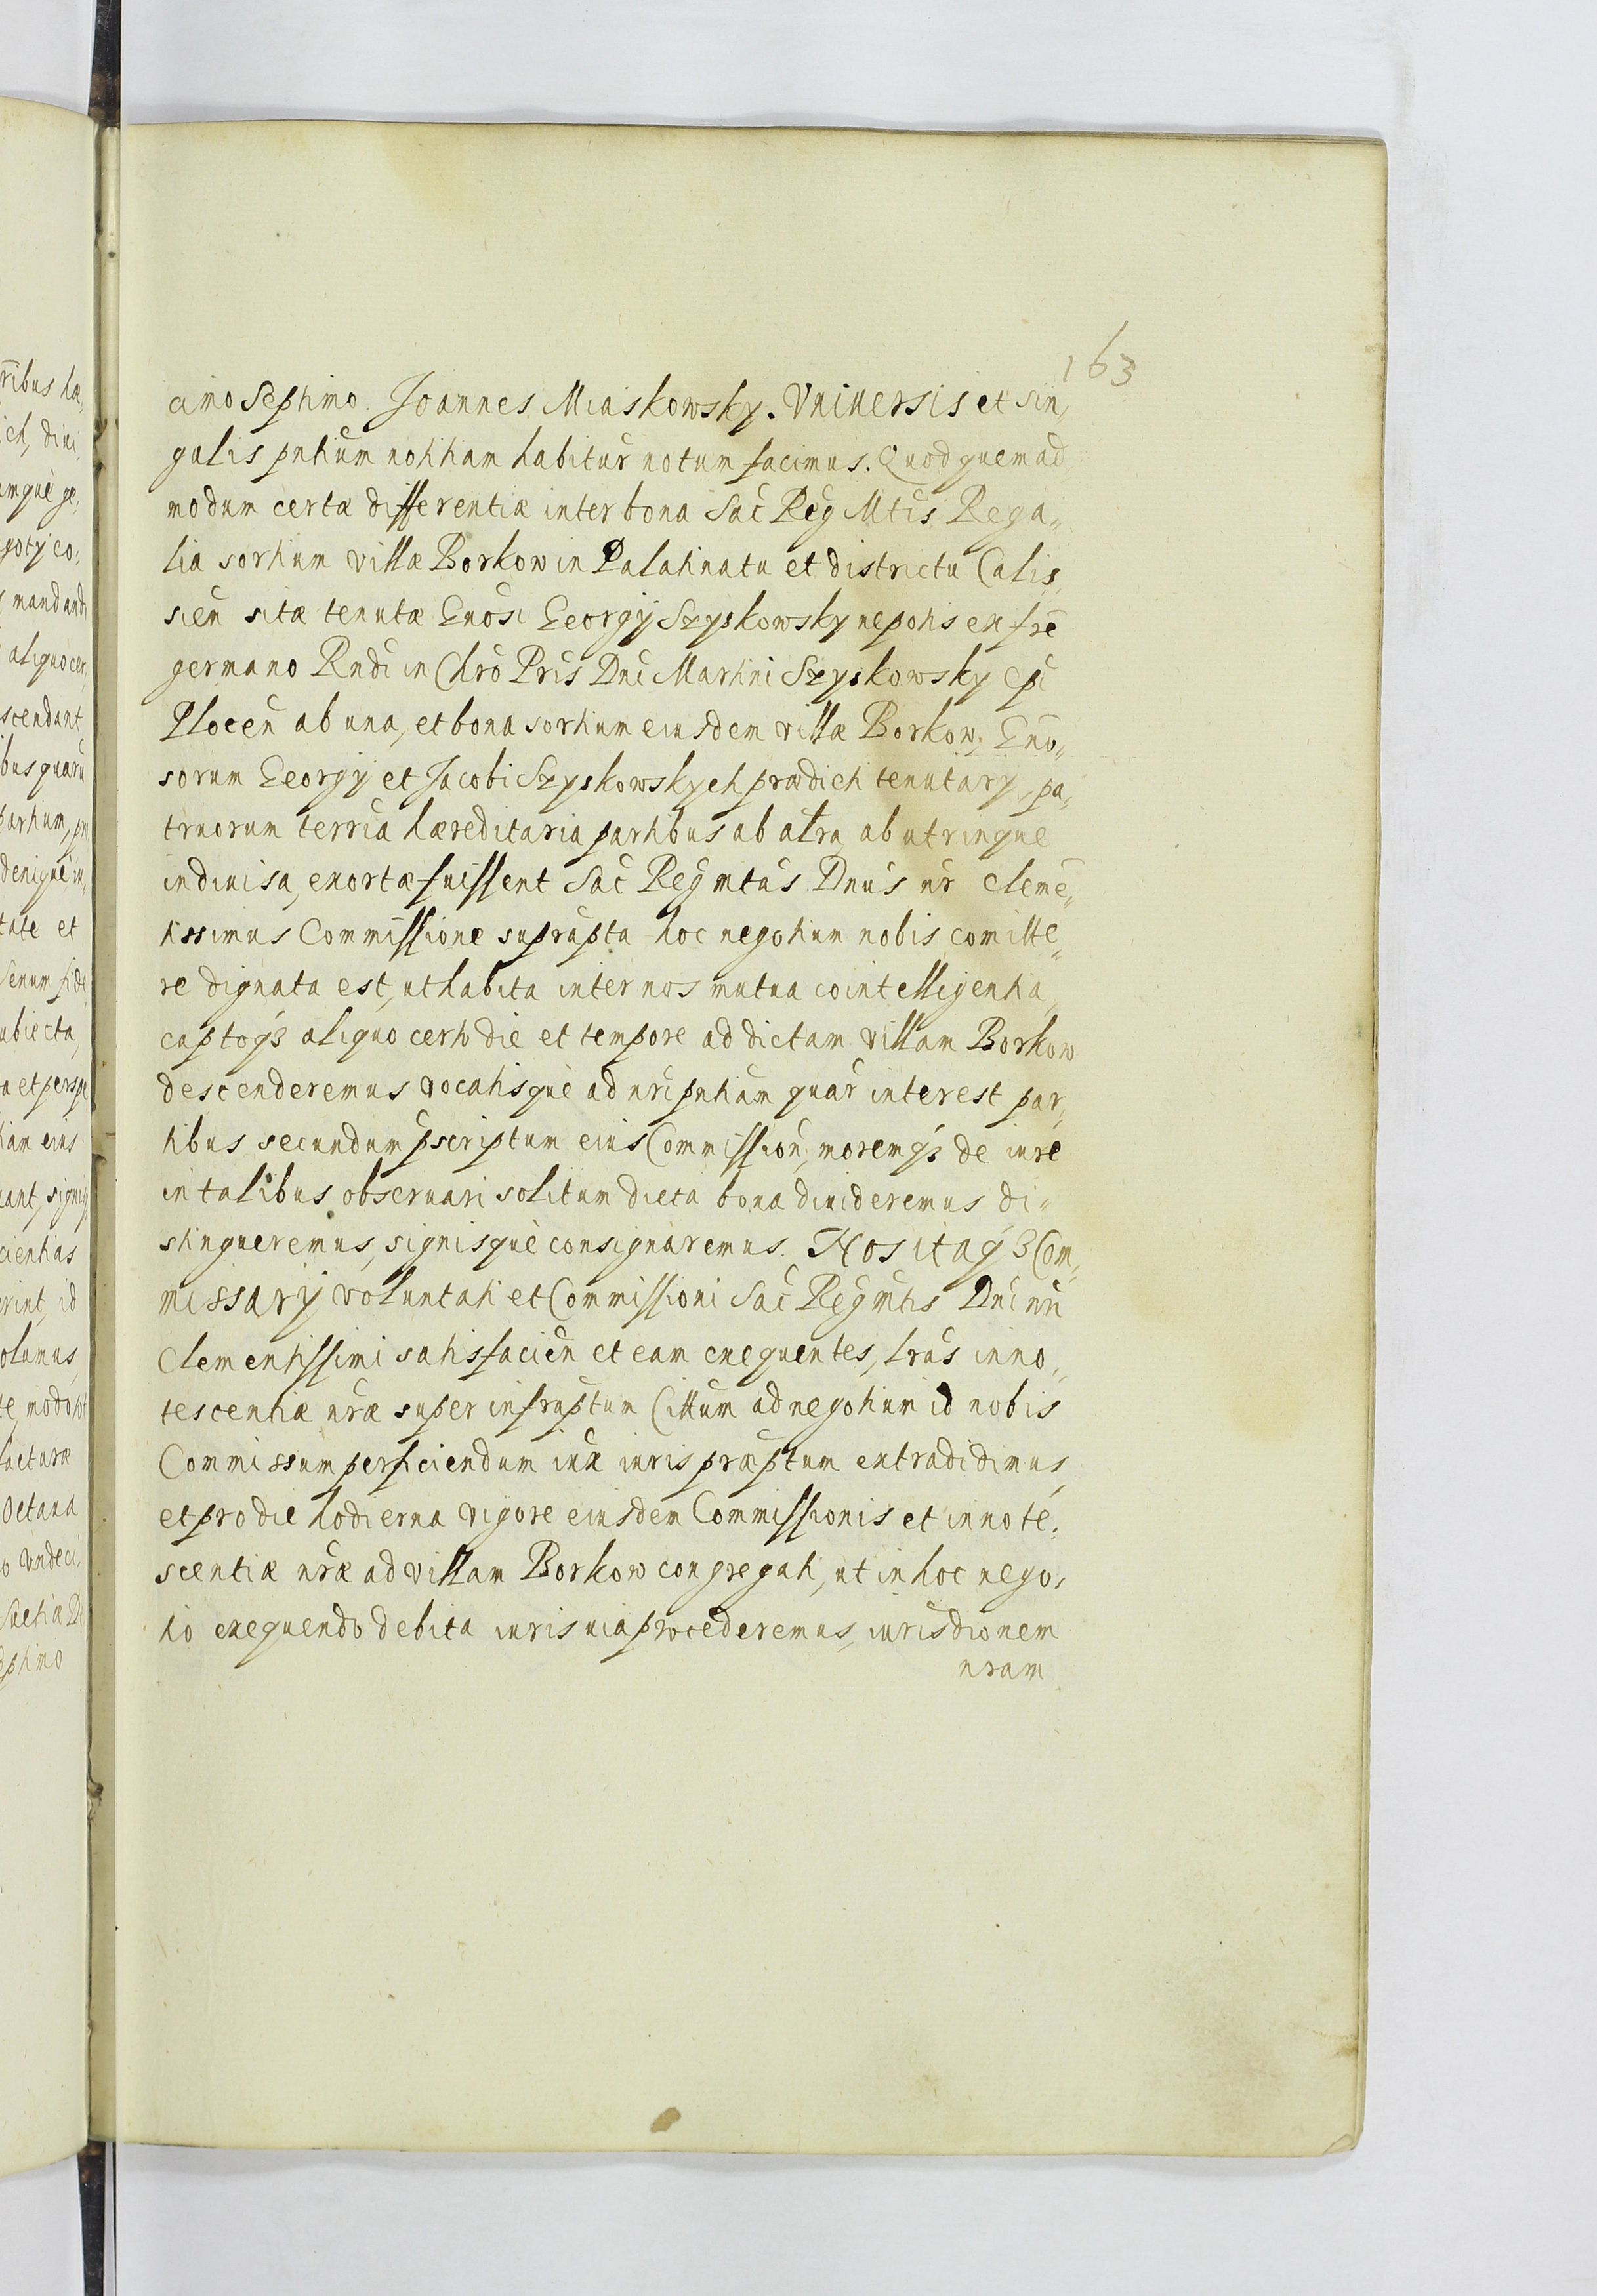 163
cimo Septimo. Joannes Miaskowsky. Vniuersis et sin,
gulis pntium notitiam habitur notum facimus. Quod quemad,
modum certæ differentiæ inter bona Sac Reg Mtis Rega„
lia sortium villæ Borkow in Palatinatu et districtu Calis,
sien sitæ tenutæ Gnosi Georgij Szyskowsky nepotis ex fre
germano Rndi in Chro Pris Dni Martini Szyskowsky Epi
Plocen ab una, et bona sortium eiusdem villæ Borkow, Gno„
sorum Georgij et Jacobi Szyskowskych prædicti tenutarij, pa„
truorum terria hæreditaria partibus ab altra, ab utrinque
indiuisa, exortæ fuissent Sac Reg mtas Dnus nr cleme„
tissimus Commissione suprapta hoc negotium nobis comitte„
re dignata est, ut habita inter nos mutua cointelligentia,
captoq3 aliquo certo die et tempore ad dictam villam Borkow
descenderemus vocatisque ad nri pntiam quar interest par,
tibus secundum pscriptum eius Commission, moremq3 de iure
in talibus obseruari solitum dicta bona diuideremus di„
stingueremus, signisque consignaremus. Nos itaq3 Com„
missarij voluntati et Commissioni Sac Reg mtis Dni nri
Clementissimi satisfacien et eam exequentes, lras inno„
tescentiæ nræ super infraptum Cittum ad negotium id nobis
Commissum perficiendum iux iuris præptum extradidimus,
et pro die hodierna vigore eiusdem Commissionis et innote,
scentiæ nræ ad villam Borkow congregati, ut in hoc nego,
tio exequendo debita iuris uia procederemus, iurisdionem
nram